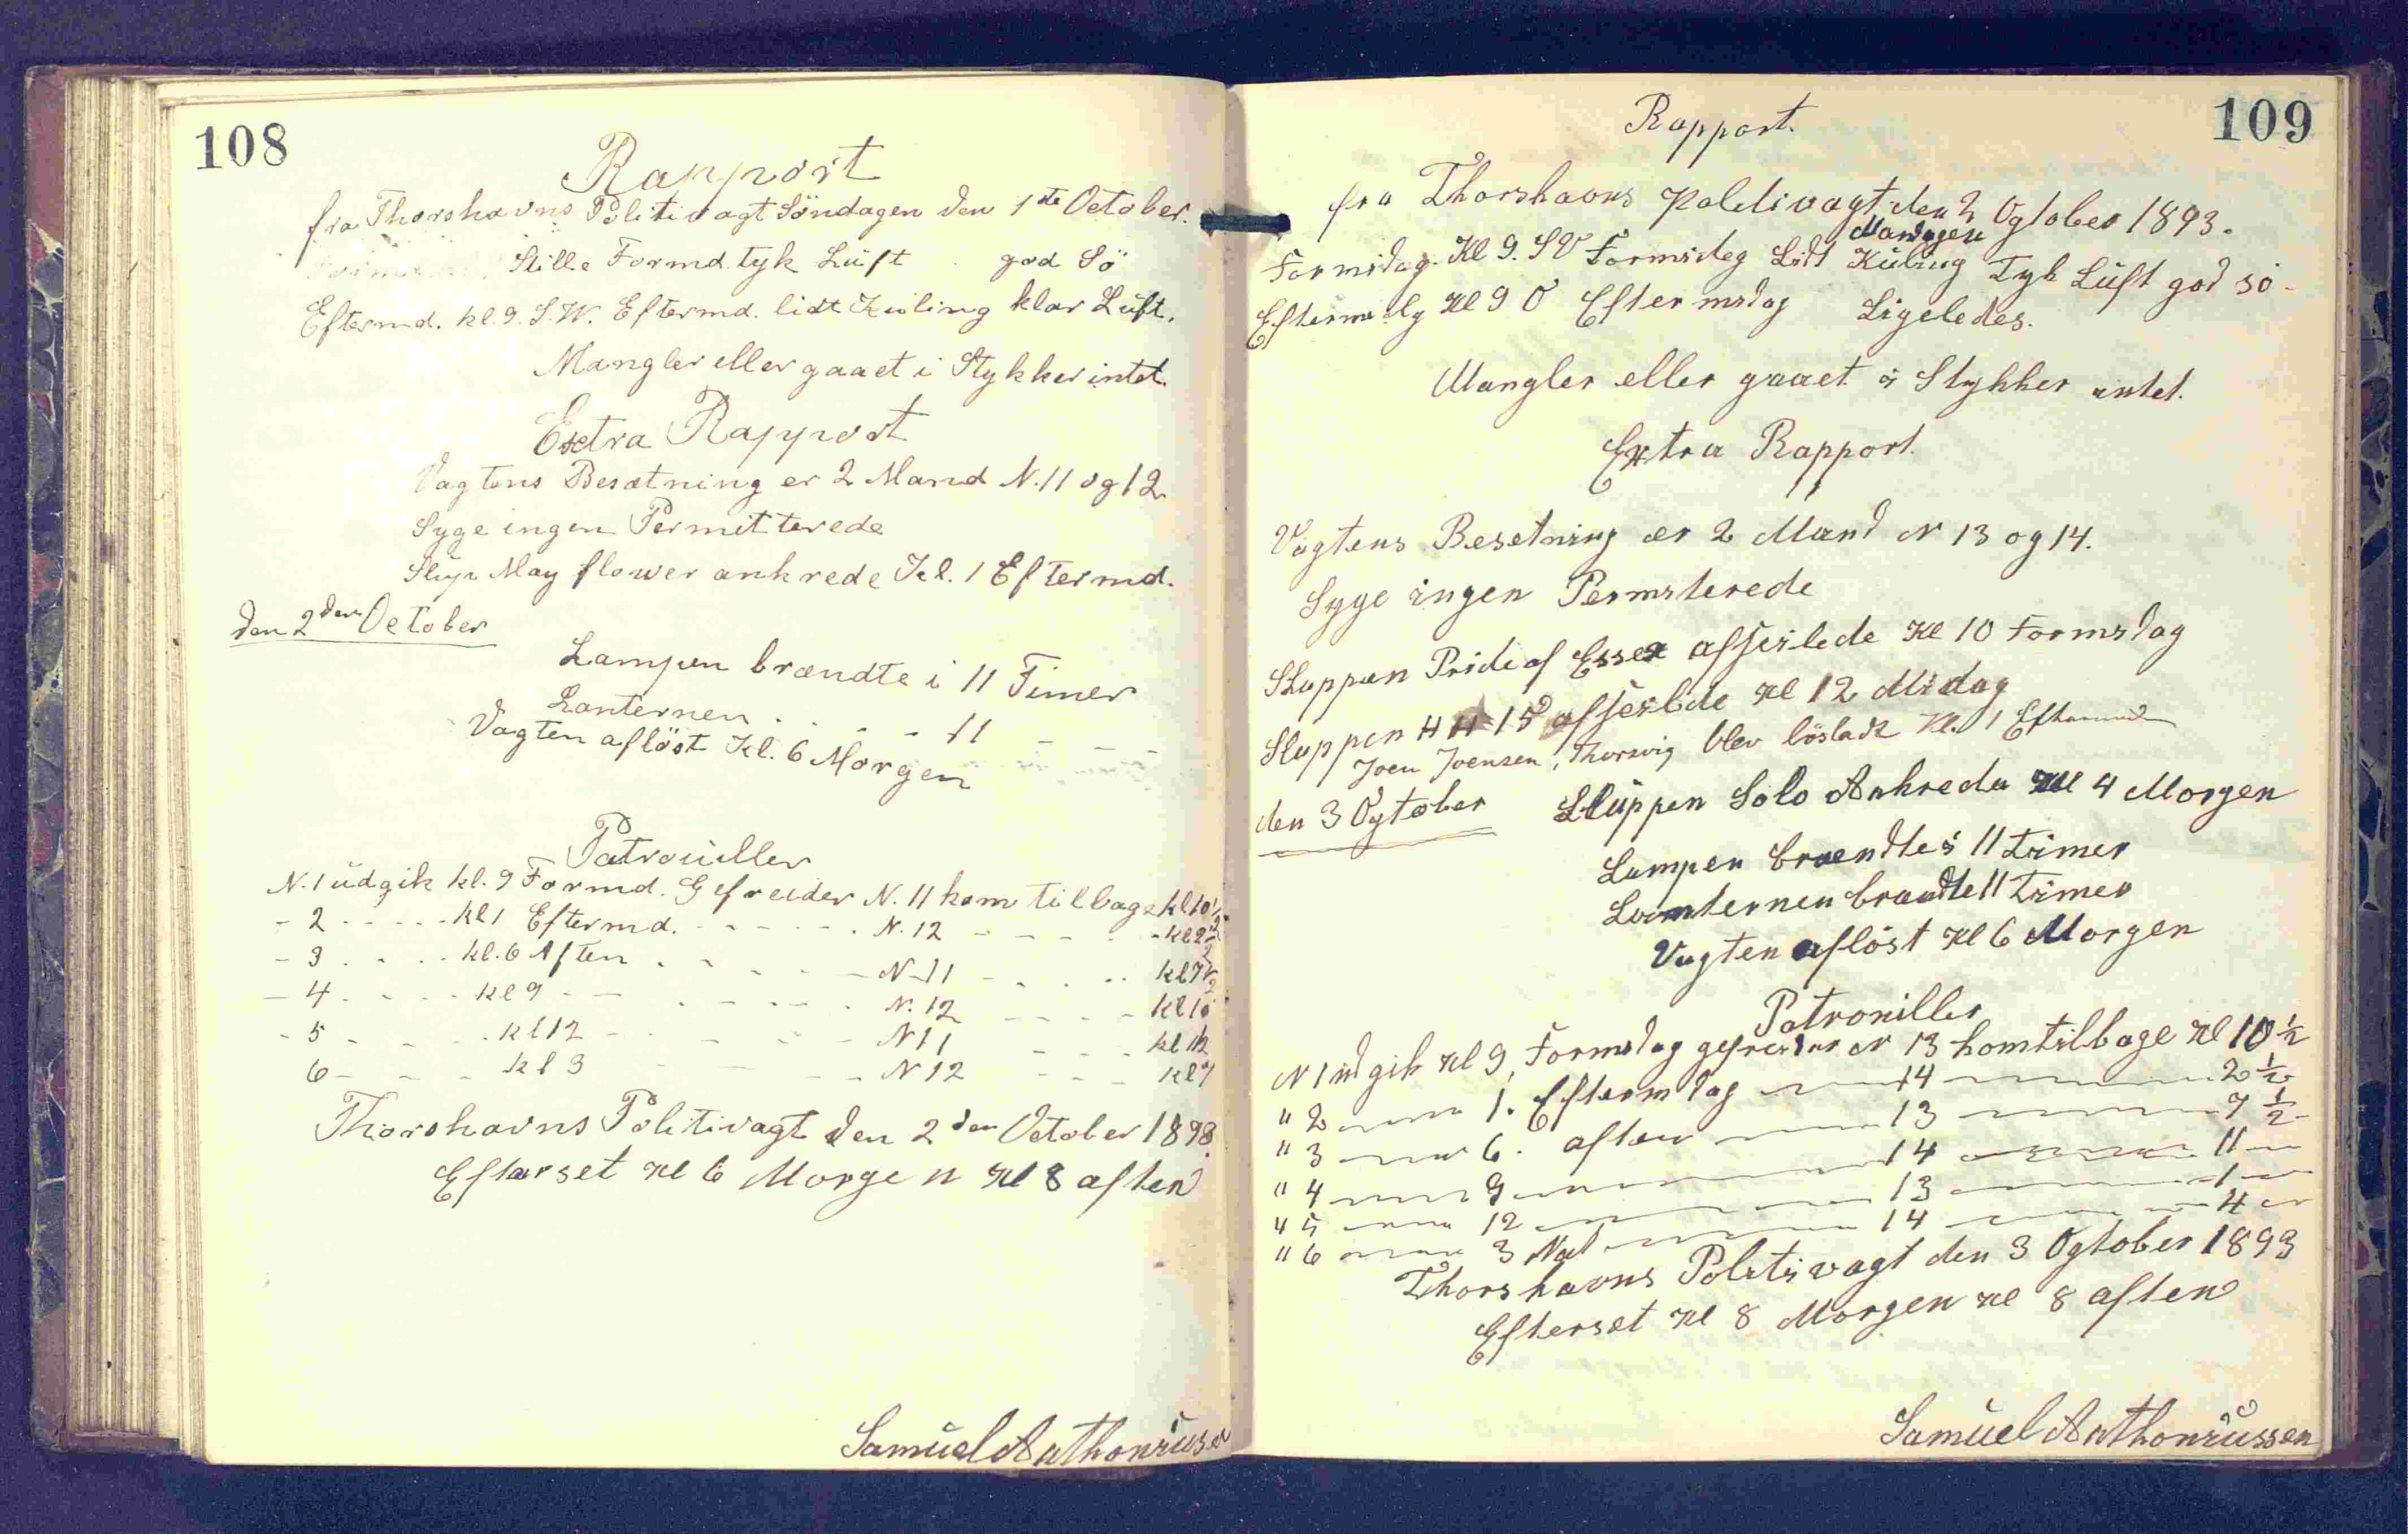 108
Rapport
fra Thorshavns Politivagt Söndagen den 1ste October.
Stille Formd. tyk Luft god Sö
Eftermd. kl. 9. S.W. Eftermd. lidt Kuling klar Luft.
Mangler eller gaaet i Stykker intet.
Extra Rapport
Vagtens Besætning er 2 Mand N. 11 og 12
Syge ingen Permitterede
Slup May flower ankrede Kl. 1 Eftermd.
den 2den October
Lampen brændte i 11 Timer
Lanternen - - - 11 - - -
Vagten aflöst Kl. 6 Morgen
Patrouiller
N. 1 udgik kl. 9 Formd. Gefreider N. 11 kom tilbage kl 10 1/2
- 2 - - - - kl 1 Eftermd. - - - - - N. 12 - - - - - kl 2 1/2
- 3 - - - - kl. 6 Aften - - - - - N - 11 - - - - kl 7 1/2
- 4 - - - - kl 9 - - - - - - N. 12 - - - - kl 10
- 5 - - - - kl 12 - - - - - N 11 - - - kl
6 - - - - kl 3 - - - - N 12 - - - kl
Thorshavns Politivagt den 2den October 1893.
Efterset Kl 6 Morgen Kl 8 aften
Samuel Anthoniusen
109
Rapport.
fra Thorshavns Politivagt den 2 Ogtober 1893.
Mandagen
Formidag. Kl 9. SV Formideg Lidt Küling Tyk Luft god sö -
Eftermidg Kl 9 O Eftermidag Ligeledes.
Mangler eller gaaet i Stykker intet.
Extra Rapport.
Vagtens Besetning er 2 Mand N 13 og 14.
Syge ingen Permiterede
Sluppen Pride of Essex afseilede Kl 10 Formidag
Sluppen H H 15 afseilede Kl 12 Midag
Joen Joensen, Thorsvig blev lösladt Kl. 1 Eftermd
den 3 Ogtober Sluppen Solo Ankreda Kl 4 Morgen
Lampen brændte i 11 Timer
Lanternen brændte 11 Timer
Vagten aflöst Kl 6 Morgen
Patrouiller
N 1 udgik Kl 9, Formidag gefreider N 13 komtilbage Kl 10 1/2
" 2 — 1. Eftermidag — 14 — 2 1/2
" 3 — 6. aften — 13 — 7 1/2
" 4 — 9 — 14 — 11 —
" 5 — 12 — 13 — 1 —
" 6 — 3 Nat — 14 — 4 —
Thorshavns Politivagt den 3 Ogtober 1893
Efterset Kl 8 Morgen Kl 8 aften
Samuel Anthoniussen